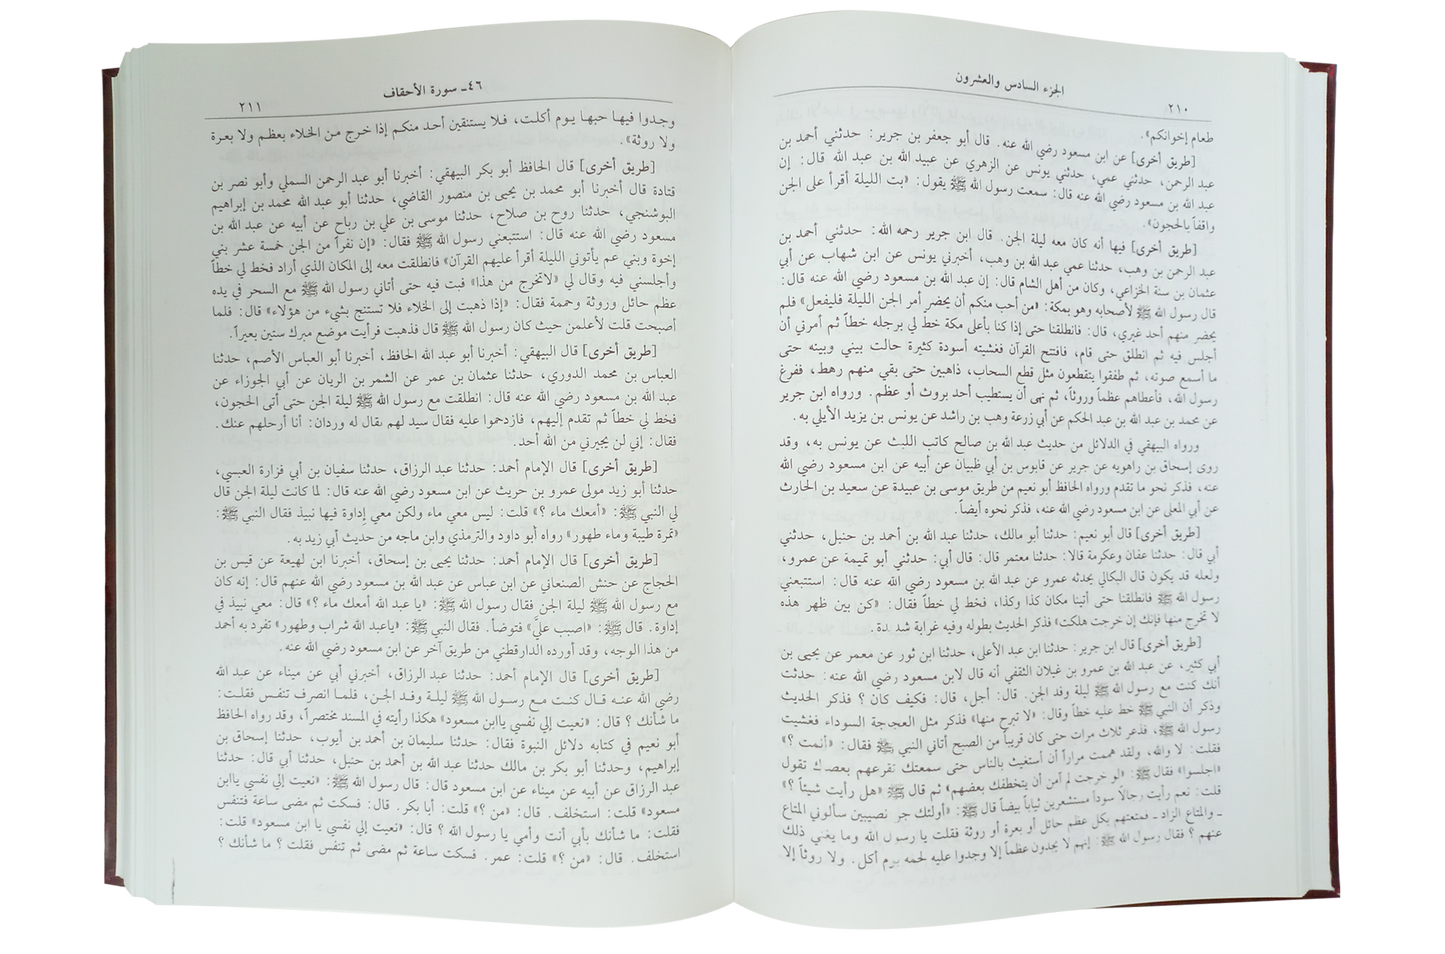 ٢١٠
الجزء السادس والعشرون
طعام إخوانكم».
[طريق أخرى] عن ابن مسعود رضي الله عنه. قال أبو جعفر بن جرير: حدثني أحمد بن
عبد الرحمن، حدثني عمي، حدثني يونس عن الزهري عن عبيد الله بن عبد الله قال: إن
عبد الله بن مسعود رضي الله عنه قال: سمعت رسول الله ﷺ يقول: «بت الليلة أقرأ على الجن
واقفاً بالحجون».
[طريق أخرى] فيها أنه كان معه ليلة الجن. قال ابن جرير رحمه الله: حدثني أحمد بن
عبد الرحمن بن وهب، حدثنا عمي عبد الله بن وهب، أخبرني يونس عن ابن شهاب عن أبي
عثمان بن سنة الخزاعي، وكان من أهل الشام قال: إن عبد الله بن مسعود رضي الله عنه قال:
قال رسول الله ﷺ لأصحابه وهو بمكة: «من أحب منكم أن يحضر أمر الجن الليلة فليفعل» فلم
يحضر منهم أحد غيري، قال: فانطلقنا حتى إذا كنا بأعلى مكة خطّ لي برجله خطاً ثم أمرني أن
أجلس فيه ثم انطلق حتى قام، فافتتح القرآن فغشيته أسودة كثيرة حالت بيني وبينه حتى
ما أسمع صوته، ثم طفقوا يتقطعون مثل قطع السحاب، ذاهبين حتى بقي منهم رهط، ففرغ
رسول الله، فأعطاهم عظماً وروثاً، ثم نهى أن يستطيب أحد بروث أو عظم. ورواه ابن جرير
عن محمد بن عبد الله بن عبد الحكم عن أبي زرعة وهب بن راشد عن يونس بن يزيد الأيلي به.
ورواه البيهقي في الدلائل من حديث عبد الله بن صالح كاتب اللبث عن يونس به، وقد
روى إسحاق بن راهويه عن جرير عن قابوس بن أبي ظبيان عن أبيه عن ابن مسعود رضي الله
عنه، فذكر نحو ما تقدم ورواه الحافظ أبو نعيم من طريق موسى بن عبيدة عن سعيد بن الحارث
عن أبي المعلى عن ابن مسعود رضي الله عنه، فذكر نحوه أيضاً.
[طريق أخرى] قال أبو نعيم: حدثنا أبو مالك، حدثنا عبد الله بن أحمد بن حنبل، حدثني
أبي قال: حدثنا عفان وعكرمة قالا: حدثنا معتمر قال: قال أبي: حدثني أبو تميمة عن عمرو،
ولعله قد يكون قال البكالي يحدثه عمرو عن عبد الله بن مسعود رضي الله عنه قال: استتبعني
رسول الله ﷺ فانطلقنا حتى أتينا مكان كذا وكذا، فخط لي خطاً فقال: «كن بين ظهر هذه
لا تخرج منها فإنك إن خرجت هلكت» فذكر الحديث بطوله وفيه غرابة شديدة.
[طريق أخرى] قال ابن جرير: حدثنا ابن عبد الأعلى، حدثنا ابن ثور عن معمر عن يحيى بن
أبي كثير، عن عبد الله بن عمرو بن غيلان الثقفي أنه قال لابن مسعود رضي الله عنه: حدثت
أنك كنت مع رسول الله ﷺ ليلة وفد الجن. قال: أجل، قال: فكيف كان؟ فذكر الحديث
وذكر أن النبي ﷺ خط عليه خطاً وقال: «لا تبرح منها» فذكر مثل العجاجة السوداء فغشيت
رسول الله ﷺ، فذعر ثلاث مرات حتى كان قريباً من الصبح أتاني النبي ﷺ فقال: «أنمت؟»
فقلت: لا والله، ولقد هممت مراراً أن أستغيث بالناس حتى سمعتك تقرعهم بعصاك تقول
«اجلسوا» فقال ﷺ: «لو خرجت لم آمن أن يتخطفك بعضهم» ثم قال ﷺ «هل رأيت شيئاً؟»
قلت: نعم رأيت رجالاً سوداً مستشعرين ثياباً بيضاً قال ﷺ: «أولئك جن نصيبين سألوني المتاع
ـ والمتاع الزاد ـ فمتعتهم بكل عظم حائل أو بعرة أو روثة فقلت يا رسول الله وما يغني ذلك
عنهم؟ فقال رسول الله ﷺ: إنهم لا يجدون عظماً إلا وجدوا عليه لحمه يوم أكل. ولا روثاً إلا
٤٦ـ سورة الأحقاف
٢١١
وجدوا فيها حبها يوم أكلت، فلا يستنقين أحد منكم إذا خرج من الخلاء بعظم ولا بعرة
ولا روثة».
[طريق أخرى] قال الحافظ أبو بكر البيهقي: أخبرنا أبو عبد الرحمن السملي وأبو نصر بن
قتادة قال أخبرنا أبو محمد بن يحيى بن منصور القاضي، حدثنا أبو عبد الله محمد بن إبراهيم
البوشنجي، حدثنا روح بن صلاح، حدثنا موسى بن علي بن رباح عن أبيه عن عبد الله بن
مسعود رضي الله عنه قال: استتبعني رسول الله ﷺ فقال: «إن نفراً من الجن خمسة عشر بني
إخوة وبني عم يأتوني الليلة أقرأ عليهم القرآن» فانطلقت معه إلى المكان الذي أراد فخط لي خطاً
وأجلسني فيه وقال لي «لاتخرج من هذا» فبت فيه حتى أتاني رسول الله ﷺ مع السحر في يده
عظم حائل وروثة وحممة فقال: «إذا ذهبت إلى الخلاء فلا تستنج بشيء من هؤلاء» قال: فلما
أصبحت قلت لأعلمن حيث كان رسول الله ﷺ قال فذهبت فرأيت موضع مبرك ستين بعيراً.
[طريق أخرى] قال البيهقي: أخبرنا أبو عبد الله الحافظ، أخبرنا أبو العباس الأصم، حدثنا
العباس بن محمد الدوري، حدثنا عثمان بن عمر عن الشمر بن الريان عن أبي الجوزاء عن
عبد الله بن مسعود رضي الله عنه قال: انطلقت مع رسول الله ﷺ ليلة الجن حتى أتى الحجون،
فخط لي خطاً ثم تقدم إليهم، فازدحموا عليه فقال سيد لهم يقال له وردان: أنا أرحلهم عنك.
فقال: إني لن يجيرني من الله أحد.
[طريق أخرى] قال الإمام أحمد: حدثنا عبد الرزاق، حدثنا سفيان بن أبي فزارة العبسي،
حدثنا أبو زيد مولى عمرو بن حريث عن ابن مسعود رضي الله عنه قال: لما كانت ليلة الجن قال
لي النبي ﷺ: «أمعك ماء؟» قلت: ليس معي ماء ولكن معي إداوة فيها نبيذ فقال النبي ﷺ:
«تمرة طيبة وماء طهور» رواه أبو داود والترمذي وابن ماجه من حديث أبي زيد به.
[طريق أخرى] قال الإمام أحمد: حدثنا يحيى بن إسحاق، أخبرنا ابن لهيعة عن قيس بن
الحجاج عن حنش الصنعاني عن ابن عباس عن عبد الله بن مسعود رضي الله عنهم قال: إنه كان
مع رسول الله ﷺ ليلة الجن فقال رسول الله ﷺ: «يا عبد الله أمعك ماء؟» قال: معي نبيذ في
إداوة. قال ﷺ: «اصبب عليّ» فتوضأ. فقال النبي ﷺ: «ياعبد الله شراب وطهور» تفرد به أحمد
من هذا الوجه، وقد أورده الدارقطني من طريق آخر عن ابن مسعود رضي الله عنه.
[طريق أخرى] قال الإمام أحمد: حدثنا عبد الرزاق، أخبرني أبي عن ميناء عن عبد الله
رضي الله عنه قال كنت مع رسول الله ﷺ ليلة وفد الجن، فلما انصرف تنفس فقلت:
ما شأنك؟ قال: «نعيت إلي نفسي ياابن مسعود» هكذا رأيته في المسند مختصراً، وقد رواه الحافظ
أبو نعيم في كتابه دلائل النبوة فقال: حدثنا سليمان بن أحمد بن أيوب، حدثنا إسحاق بن
إبراهيم، وحدثنا أبو بكر بن مالك حدثنا عبد الله بن أحمد بن حنبل، حدثنا أبي قال: حدثنا
عبد الرزاق عن أبيه عن ميناء عن ابن مسعود قال: قال رسول الله ﷺ: «نعيت إلي نفسي ياابن
مسعود» قلت: استخلف. قال: «من؟» قلت: أبا بكر. قال: فسكت ثم مضى ساعة فتنفس
فقلت: ما شأنك بأبي أنت وأمي يا رسول الله؟ قال: «نعيت إلي نفسي يا ابن مسعود» قلت:
استخلف. قال: «من؟» قلت: عمر. فسكت ساعة ثم مضى ثم تنفس فقلت؟ ما شأنك؟